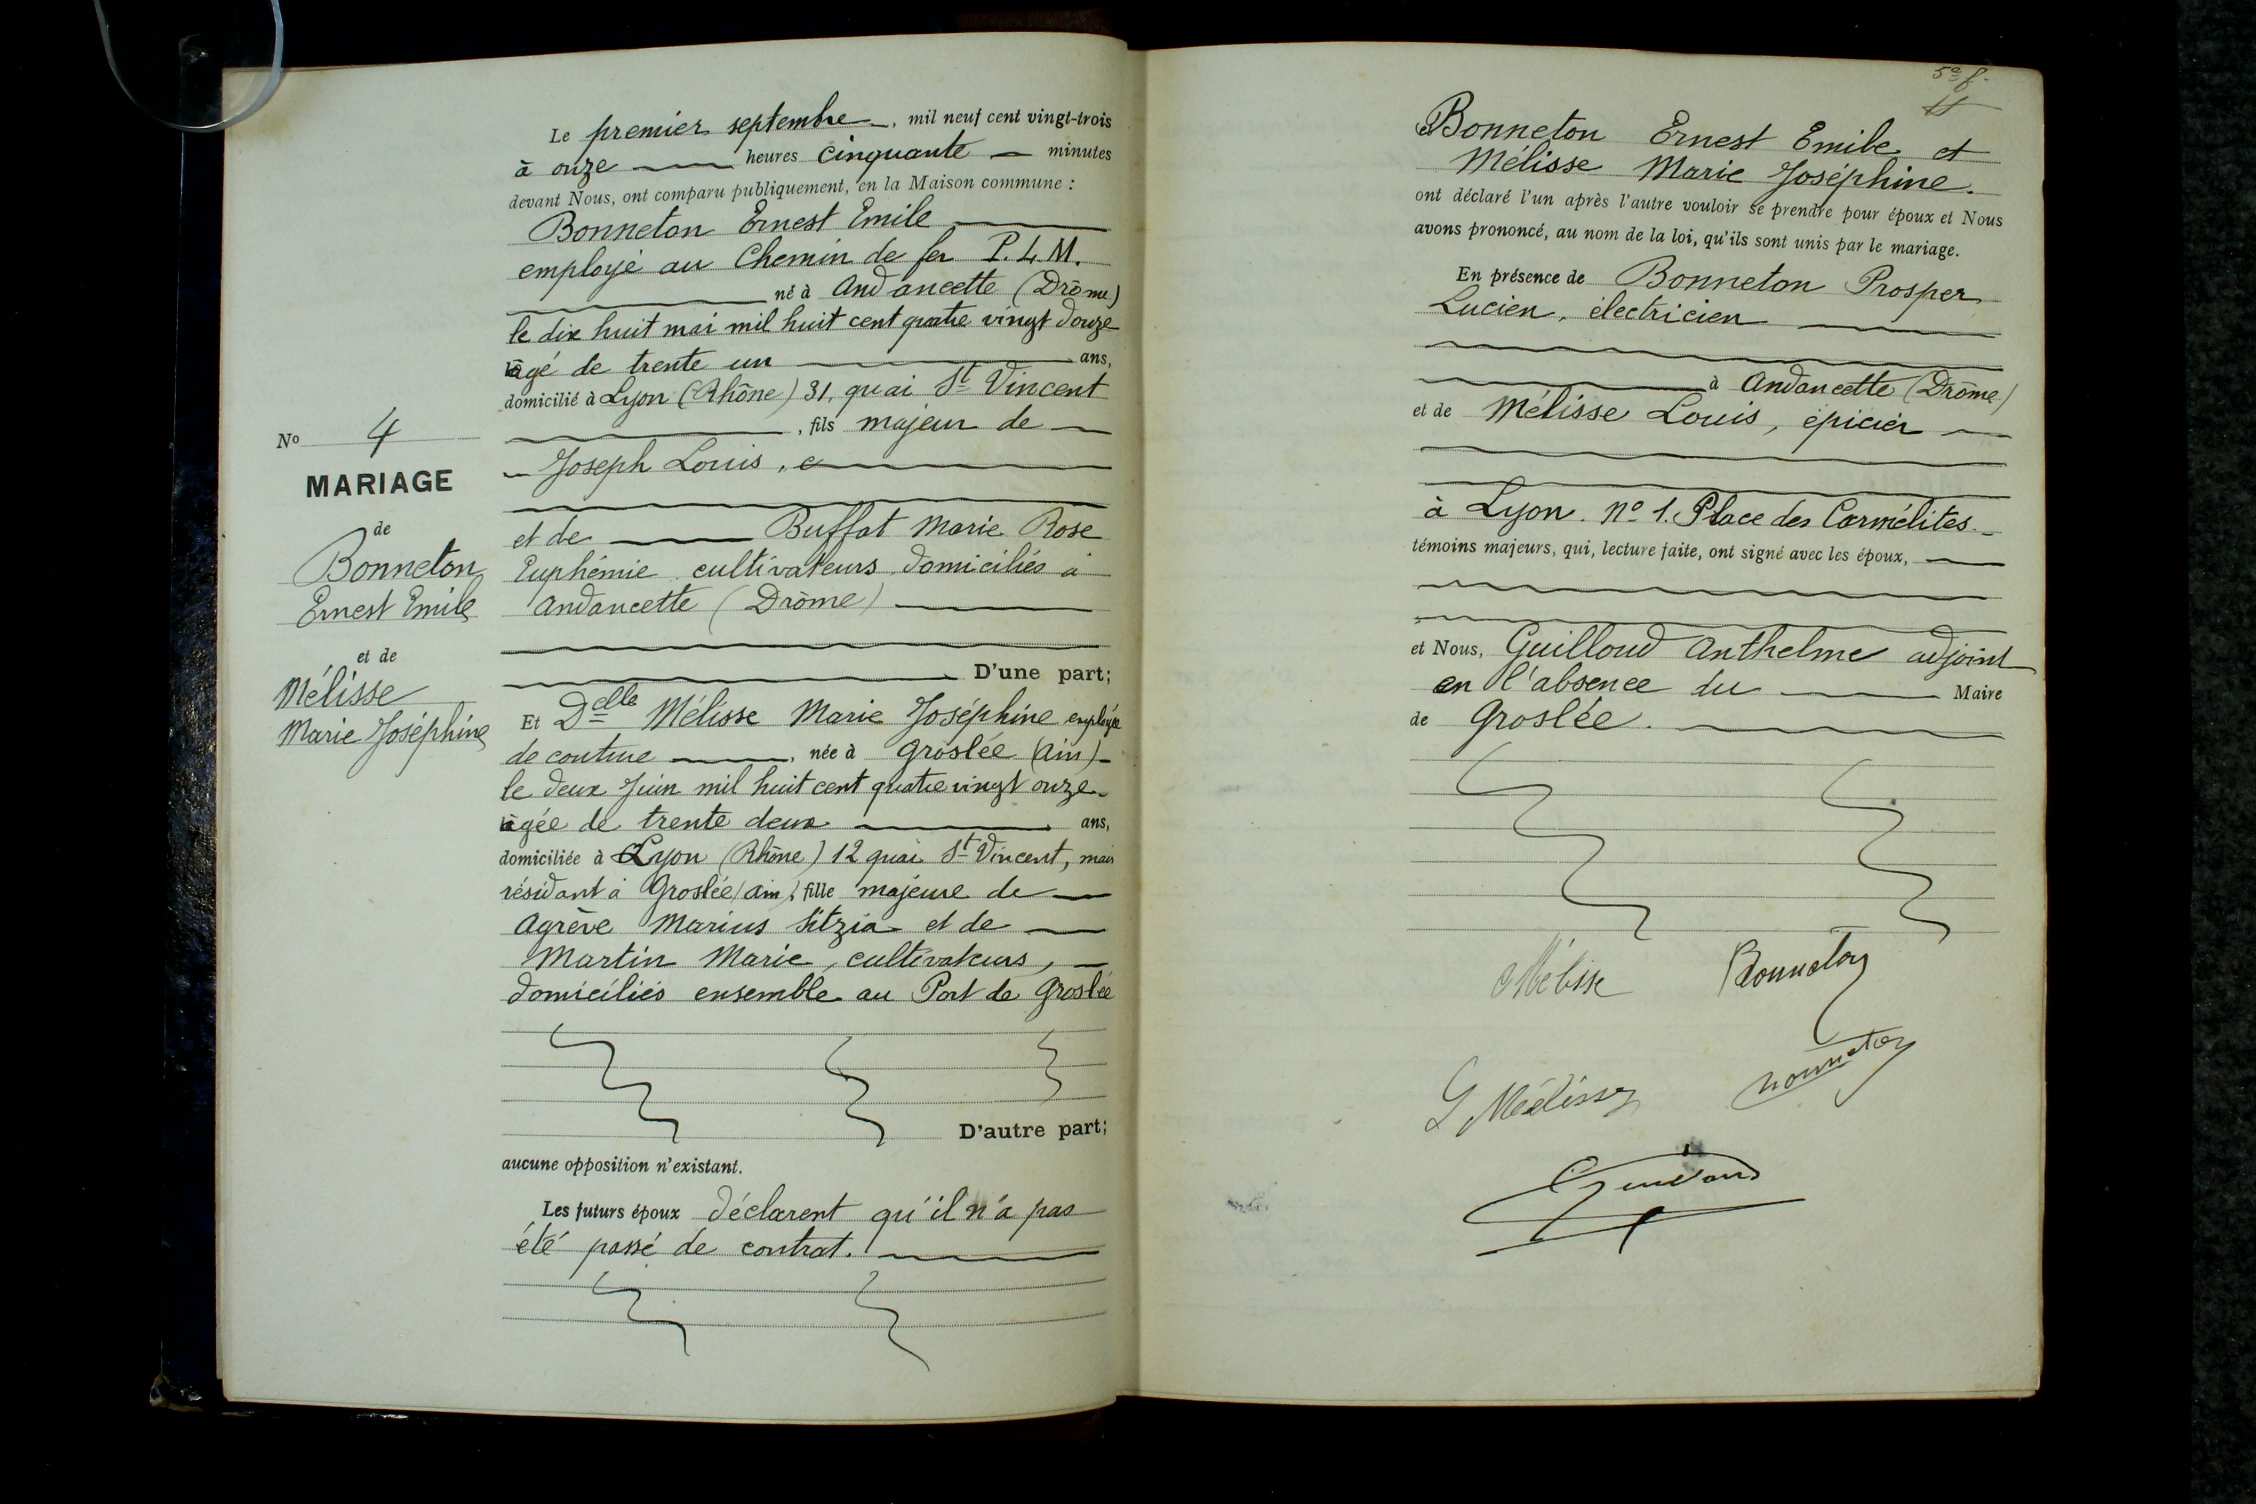 Le premier septembre, mil neuf cent vingt-trois
à onze heures cinquante minutes
devant Nous, ont comparu publiquement, en la Maison commune :
Bonneton Ernest Emile
employé au Chemin de fer P.L.M.
né à Andancette (Drôme)
le dix huit mai mil huit cent quatre vingt douze
âgé de trente un ans,
domicilié à Lyon (Rhône) 31, quai St Vincent
, fils majeur de
Joseph Louis,
et de Buffat Marie Rose
Euphémie cultivateurs domiciliés à
Andancette (Drôme)
D'une part;
Et Delle Mélisse Marie Joséphine employée
de couture, née à Groslée (Ain)
le deux Juin mil huit cent quatre vingt onze
âgée de trente deux ans,
domiciliée à Lyon (Rhône) 12 quai St Vincent, mais
résidant à Groslée (Ain), fille majeure de
Agrève Marius Sitzia et de
Martin Marie, cultivateurs,
domiciliés ensemble au Port de Groslée
D'autre part;
aucune opposition n'existant.
Les futurs époux déclarent qu'il n'a pas
été passé de contrat.
No 4
MARIAGE
de
Bonneton
Ernest Emile
et de
Mélisse
Marie Joséphine
5e f.
Bonneton Ernest Emile et
Mélisse Marie Joséphine.
ont déclaré l'un après l'autre vouloir se prendre pour époux et Nous
avons prononcé, au nom de la loi, qu'ils sont unis par le mariage.
En présence de Bonneton Prosper
Lucien, électricien
à Andancette (Drôme)
et de Mélisse Louis, épicier
à Lyon. No 1. Place des Carmélites.
témoins majeurs, qui, lecture faite, ont signé avec les époux,
et Nous, Guilloud Anthelme adjoint
en l'absence du Maire
de Groslée.
Mélisse Bonneton
L Mélisse Bonneton
Guilloud